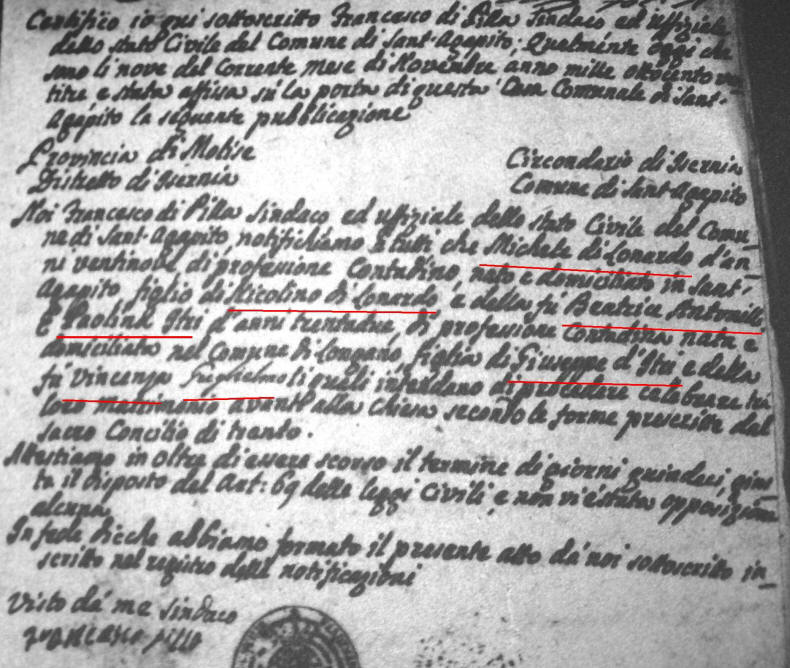 Certifico io qui sottoscritto Francesco di Pilla Sindaco ed uffiziale
dello stato Civile del Comune di Sant-Agapito. Qualmente oggi che
sono li nove del Corrente mese di Novembre anno mille ottocento ven
titre e stata affissa sù la porta di questa Casa Comunale di Sant-
Agapito la seguente pubblicazione
Provincia di Molise
Distretto di Isernia
Circondario di Isernia
Comune di Sant-Agapito
Noi Francesco di Pilla Sindaco ed uffiziale dello stato Civile del Comu
ne di Sant-Agapito, notifichiamo a tutti che Michele di Lonardo d'an
ni ventinove, di professione Contadino nato e domiciliato in Sant-
Agapito figlio di Nicolino di Lonardo, e della fù Beatrice Antonilli
E Paolina Itri d'anni trentadue, di professione Contadina nata e
domiciliata nel Comune di Longano, figlia di Giuseppe d'Itri e della
fù Vincenza Guglielmo li quali intendano di procedere celebrare tra
loro matrimonio avanti alla Chiesa secondo le forme prescritte dal
sacro Concilio di trento.
Attestiamo in oltre di essere scorso il termine di giorni quindeci, giu
ta il disposto del Art: 69 delle leggi Civili, e non vi è stata opposizione
alcuna
In fede di che abbiamo formato il presente atto dà noi sottoscritto in
scritto nel registro delle notificazioni
Visto dà me Sindaco
Francesco Pilla